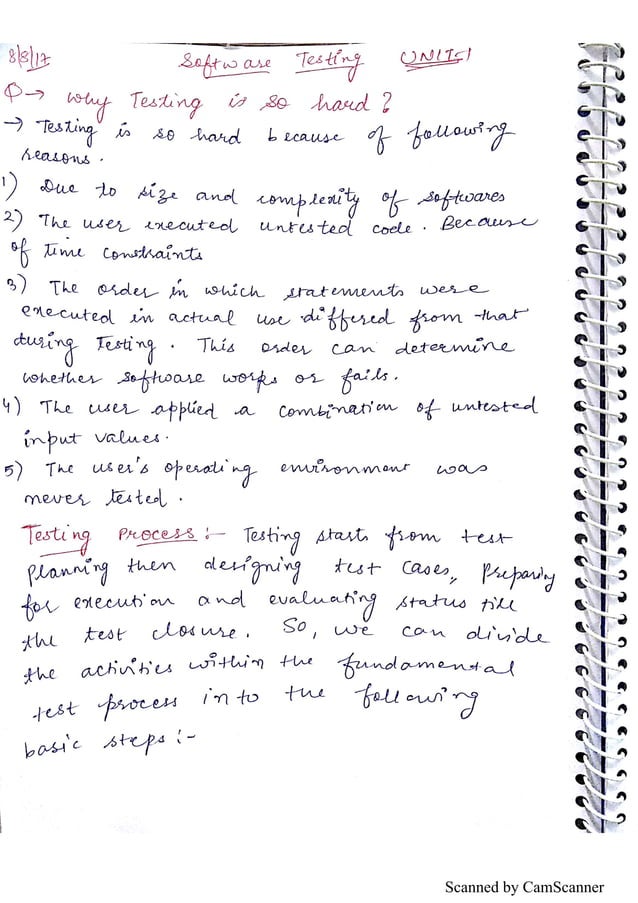 8/8/17 Software Testing UNIT-1
Q → Why Testing is so hard ?
→ Testing is so hard because of following
reasons.
1) Due to size and complexity of softwares
2) The user executed untested code. Because
of time constraints
3) The order in which statements were
executed in actual use differed from that
during Testing. This order can determine
whether software works or fails.
4) The user applied a combination of untested
input values.
5) The user's operating environment was
never tested.
Testing Process :- Testing starts from test
planning then designing test cases, preparing
for execution and evaluating status till
the test closure. So, we can divide
the activities within the fundamental
test process in to the following
basic steps :-
Scanned by CamScanner